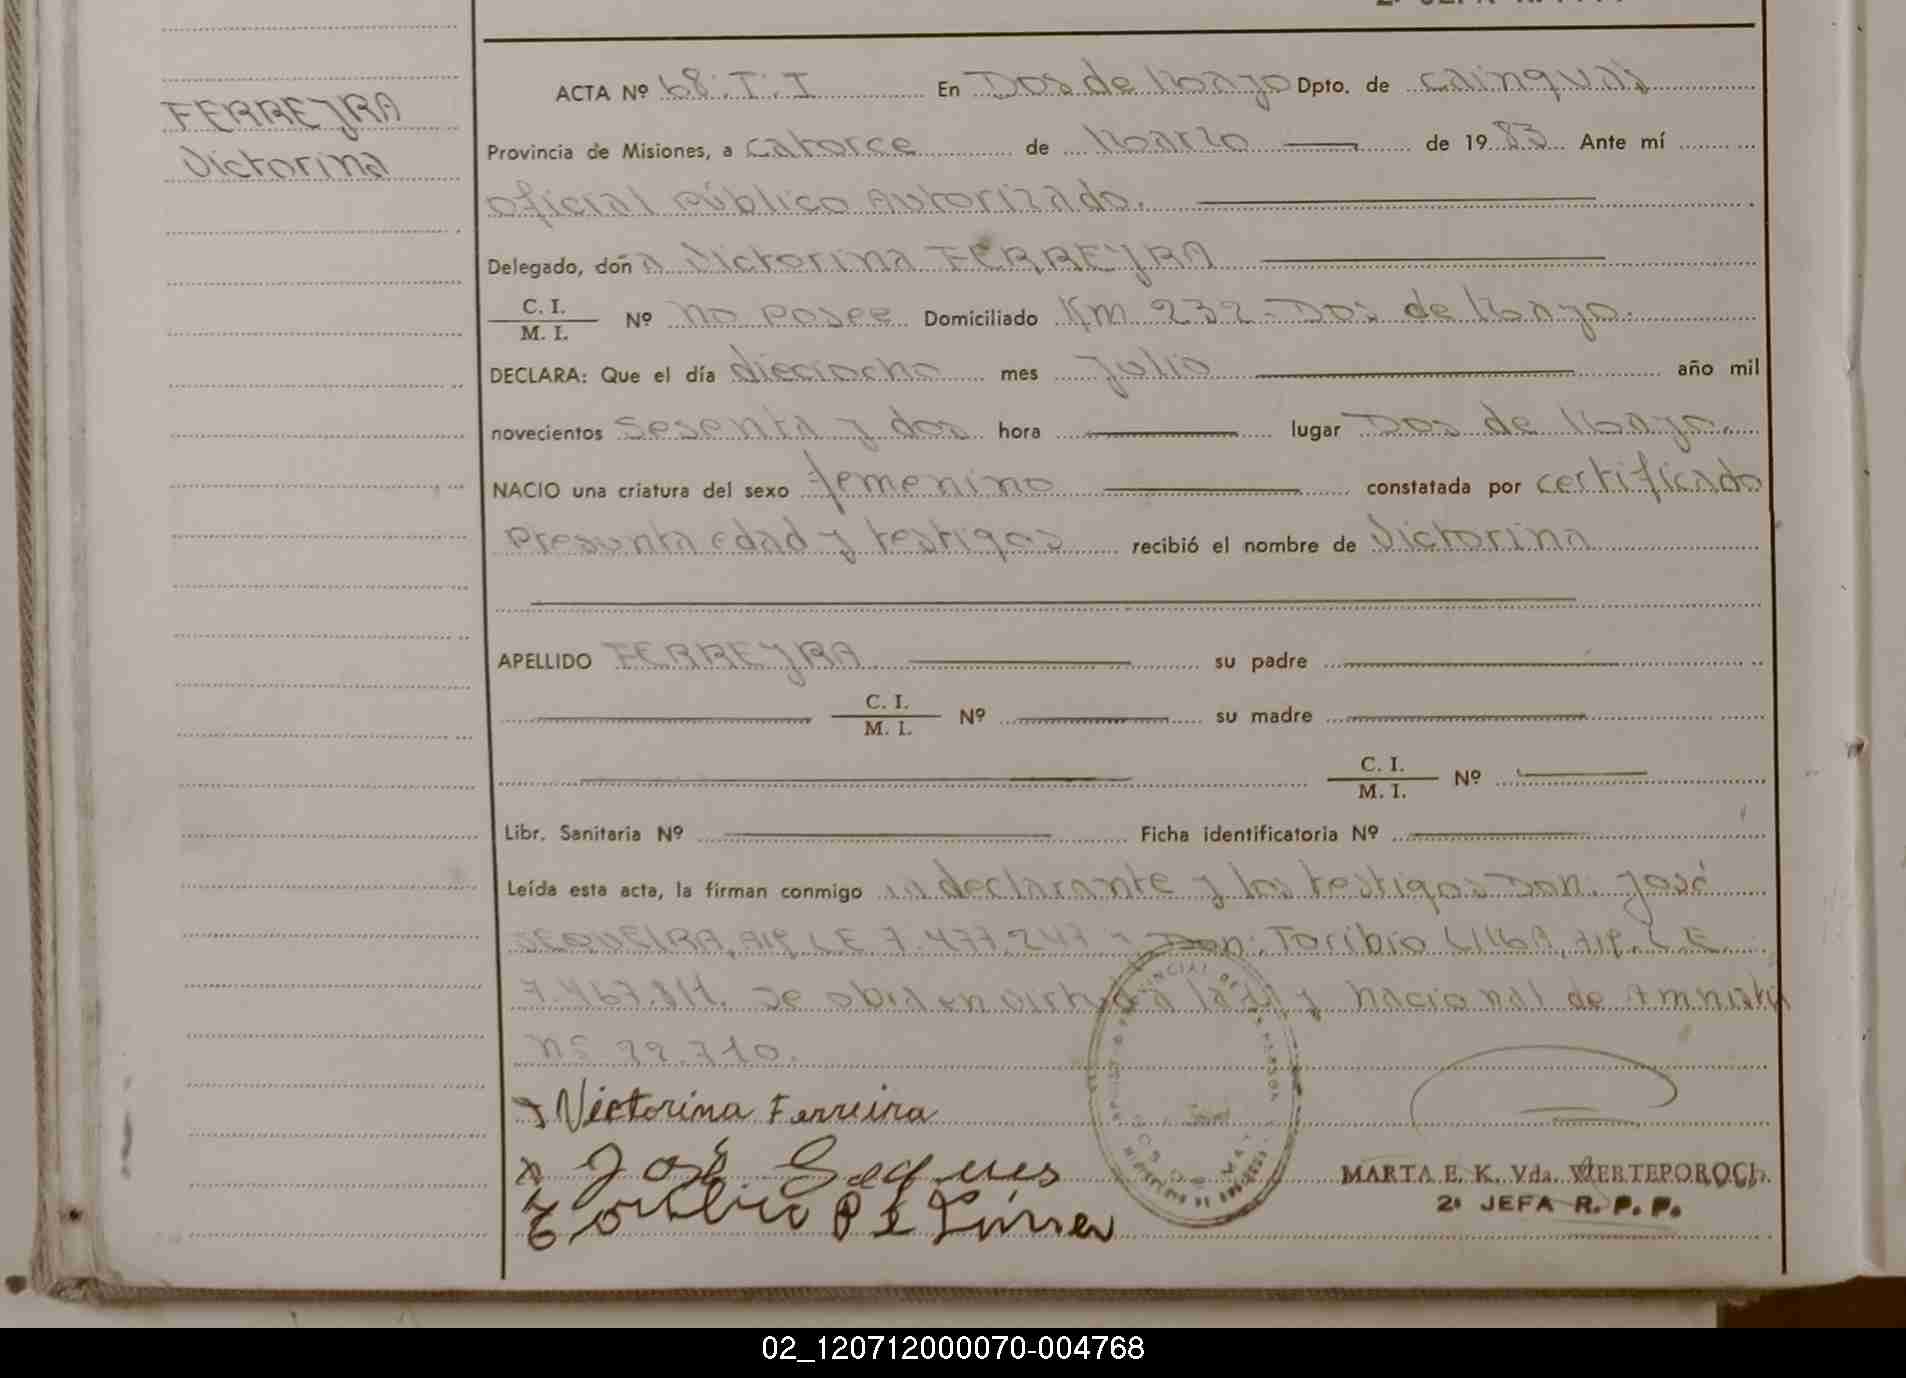 FERREYRA
Victorina
ACTA Nº 68.T.I En Dos de Mayo Dpto. de Cainguás
Provincia de Misiones, a catorce de Marzo de 1983 Ante mí
Oficial Público Autorizado.
Delegado, doña Victorina FERREYRA
C. I.
M. I. Nº no posee Domiciliado Km 232 - Dos de Mayo.
DECLARA: Que el día dieciocho mes Julio año mil
novecientos sesenta y dos hora lugar Dos de Mayo.
NACIO una criatura del sexo femenino constatada por certificado
presunta edad y testigos recibió el nombre de Victorina
APELLIDO FERREYRA su padre
C. I.
M. I. Nº su madre
C. I.
M. I. Nº
Libr. Sanitaria Nº Ficha identificatoria Nº
Leída esta acta, la firman conmigo la declarante y los testigos Don. José
SEQUEIRA, L E 7.477.247 y Don: Toribio LIMA, L E
7.467.811. Se obra en virtud a la Ley Nacional de Amnistía
Nº 22.710.
Victorina Ferreira
José
MARTA E. K. Vda. WERTEPOROCH
2ª JEFA R. P. P.
02_120712000070-004768